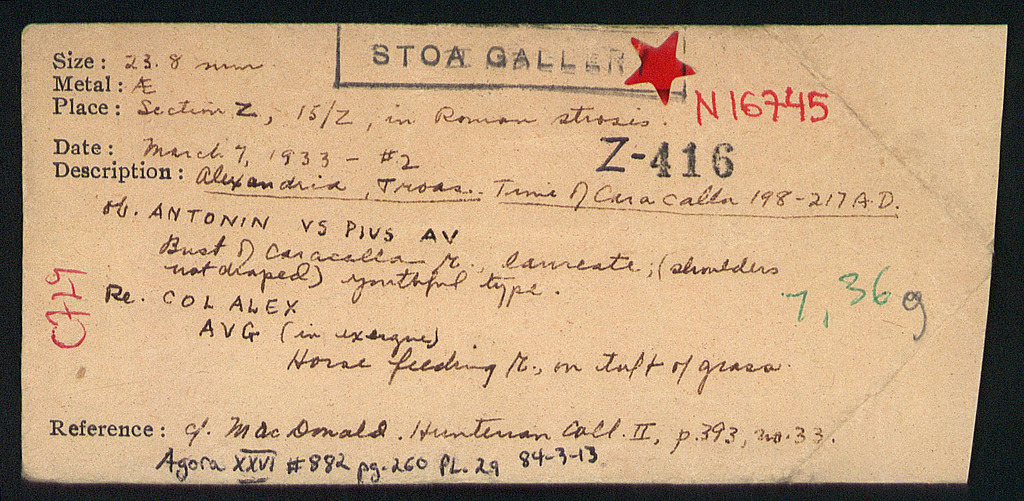 STOA GALLERY
Size: 23.8 mm
Metal: Æ
Place: Section Z, 15/Z, in Roman strosis.
N16745
Date: March 7, 1933 - #2
Z-416
Description: Alexandria, Troas. Time of Caracalla 198-217 A.D.
Ob. ANTONIN VS PIVS AV
Bust of Caracalla r., laureate; (shoulders
not draped) youthful type.
Re. COL ALEX
AVG (in exergue)
Horse feeding r., on tuft of grass.
7,36 g
Reference: cf. MacDonald. Hunterian Coll. II, p.393, no.33.
Agora XXVI #882 pg.260 PL.29 84-3-13